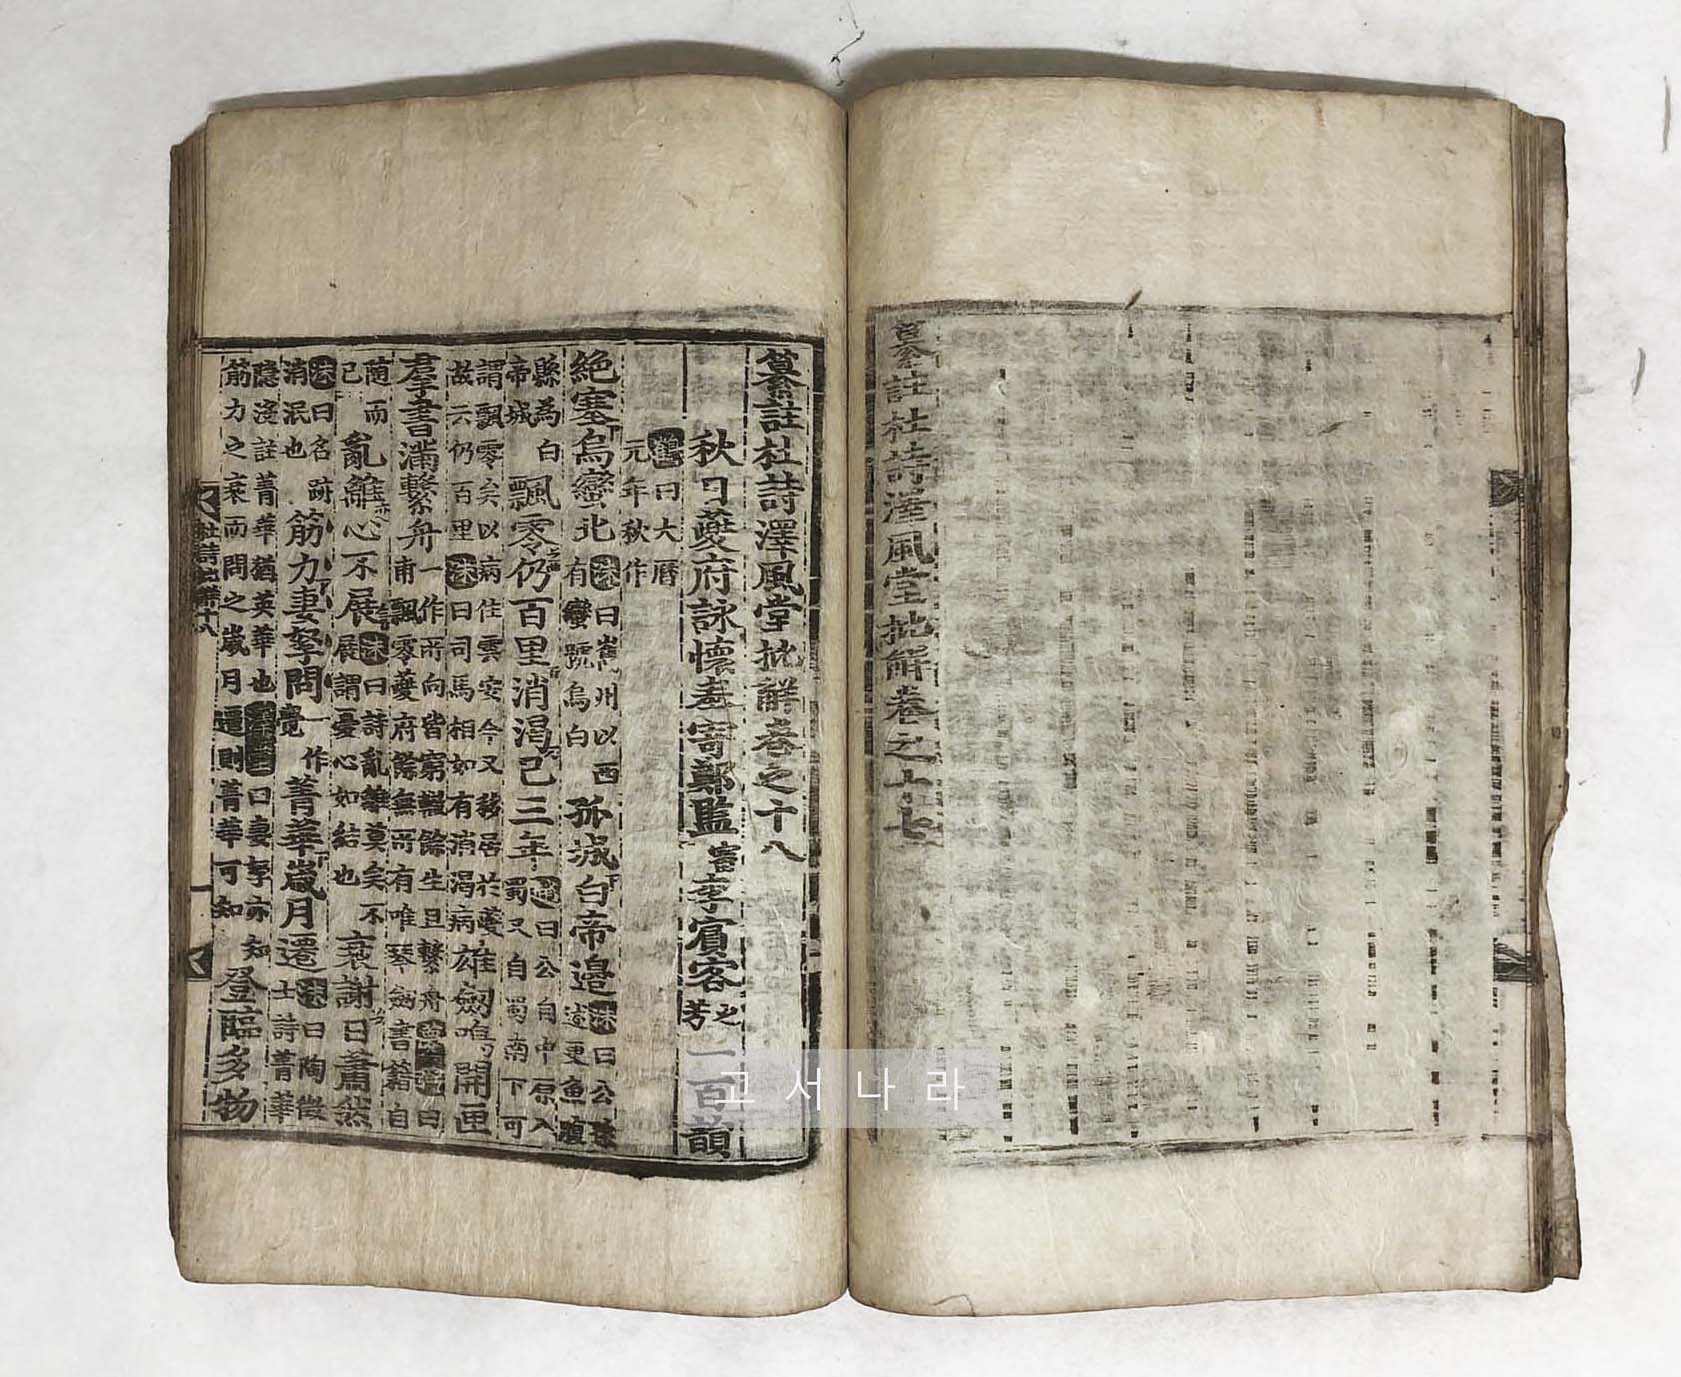 纂註杜詩澤風堂批解卷之十七
纂註杜詩澤風堂批解卷之十八
秋日夔府詠懷奉寄鄭監審李賓客之芳一百韻
鶴曰大曆元年秋作
絶塞烏蠻北洙曰嶲州以西有蠻號烏白孤城白帝邊洙曰公孫述更魚腹
縣為白帝城飄零仍百里消渴已三年趙曰公自中原入蜀又自蜀南下可
謂飄零矣以病住雲安今又移居於夔故云仍百里洙曰司馬相如有消渴病雄劒鳴開匣
羣書滿繫舟一作所向皆窮轍餘生且繫舟曰甫飄零夔府餘無所有唯琴劒書籍自
随而已亂離心不展洙曰詩亂離莫矣不展謂憂心如結也衰謝日蕭然
洙曰名跡消泯也筋力妻孥問一作覺菁華歲月遷洙曰陶徵士詩菁華
隱淺註菁華猶英華也曰妻孥亦知筋力之衰而問之歲月遷則菁華可知登臨多物
杜詩批解十八
一
고서나라